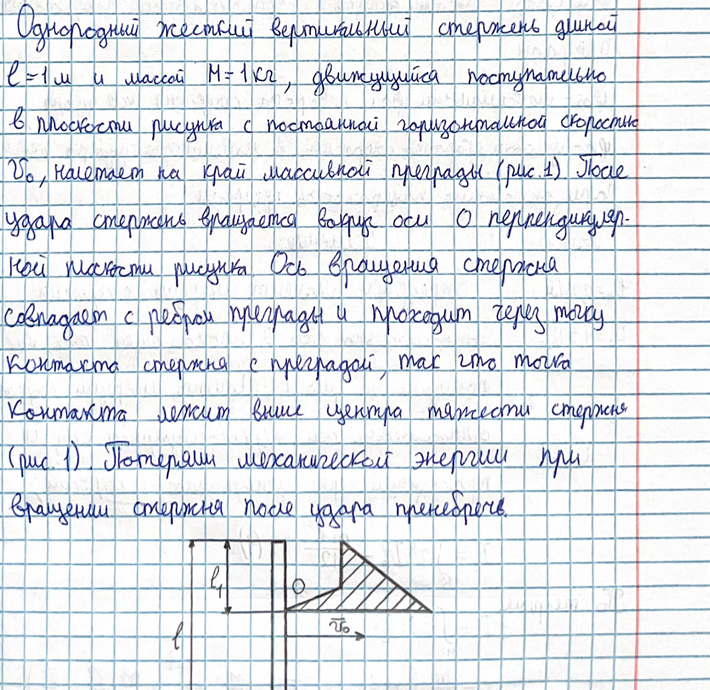 Однородный жесткий вертикальный стержень длиной
l=1м и массой M=1кг, движущийся поступательно
в плоскости рисунка с постоянной горизонтальной скоростью
v₀, налетает на край массивной преграды (рис.1) После
удара стержень вращается вокруг оси O перпендикуляр-
ной плоскости рисунка. Ось вращения стержня
совпадает с ребром преграды и проходит через точку
контакта стержня с преградой, так что точка
контакта лежит выше центра тяжести стержня
(рис.1). Потерями механической энергии при
вращении стержня после удара пренебречь.
l₁ O
v₀
l